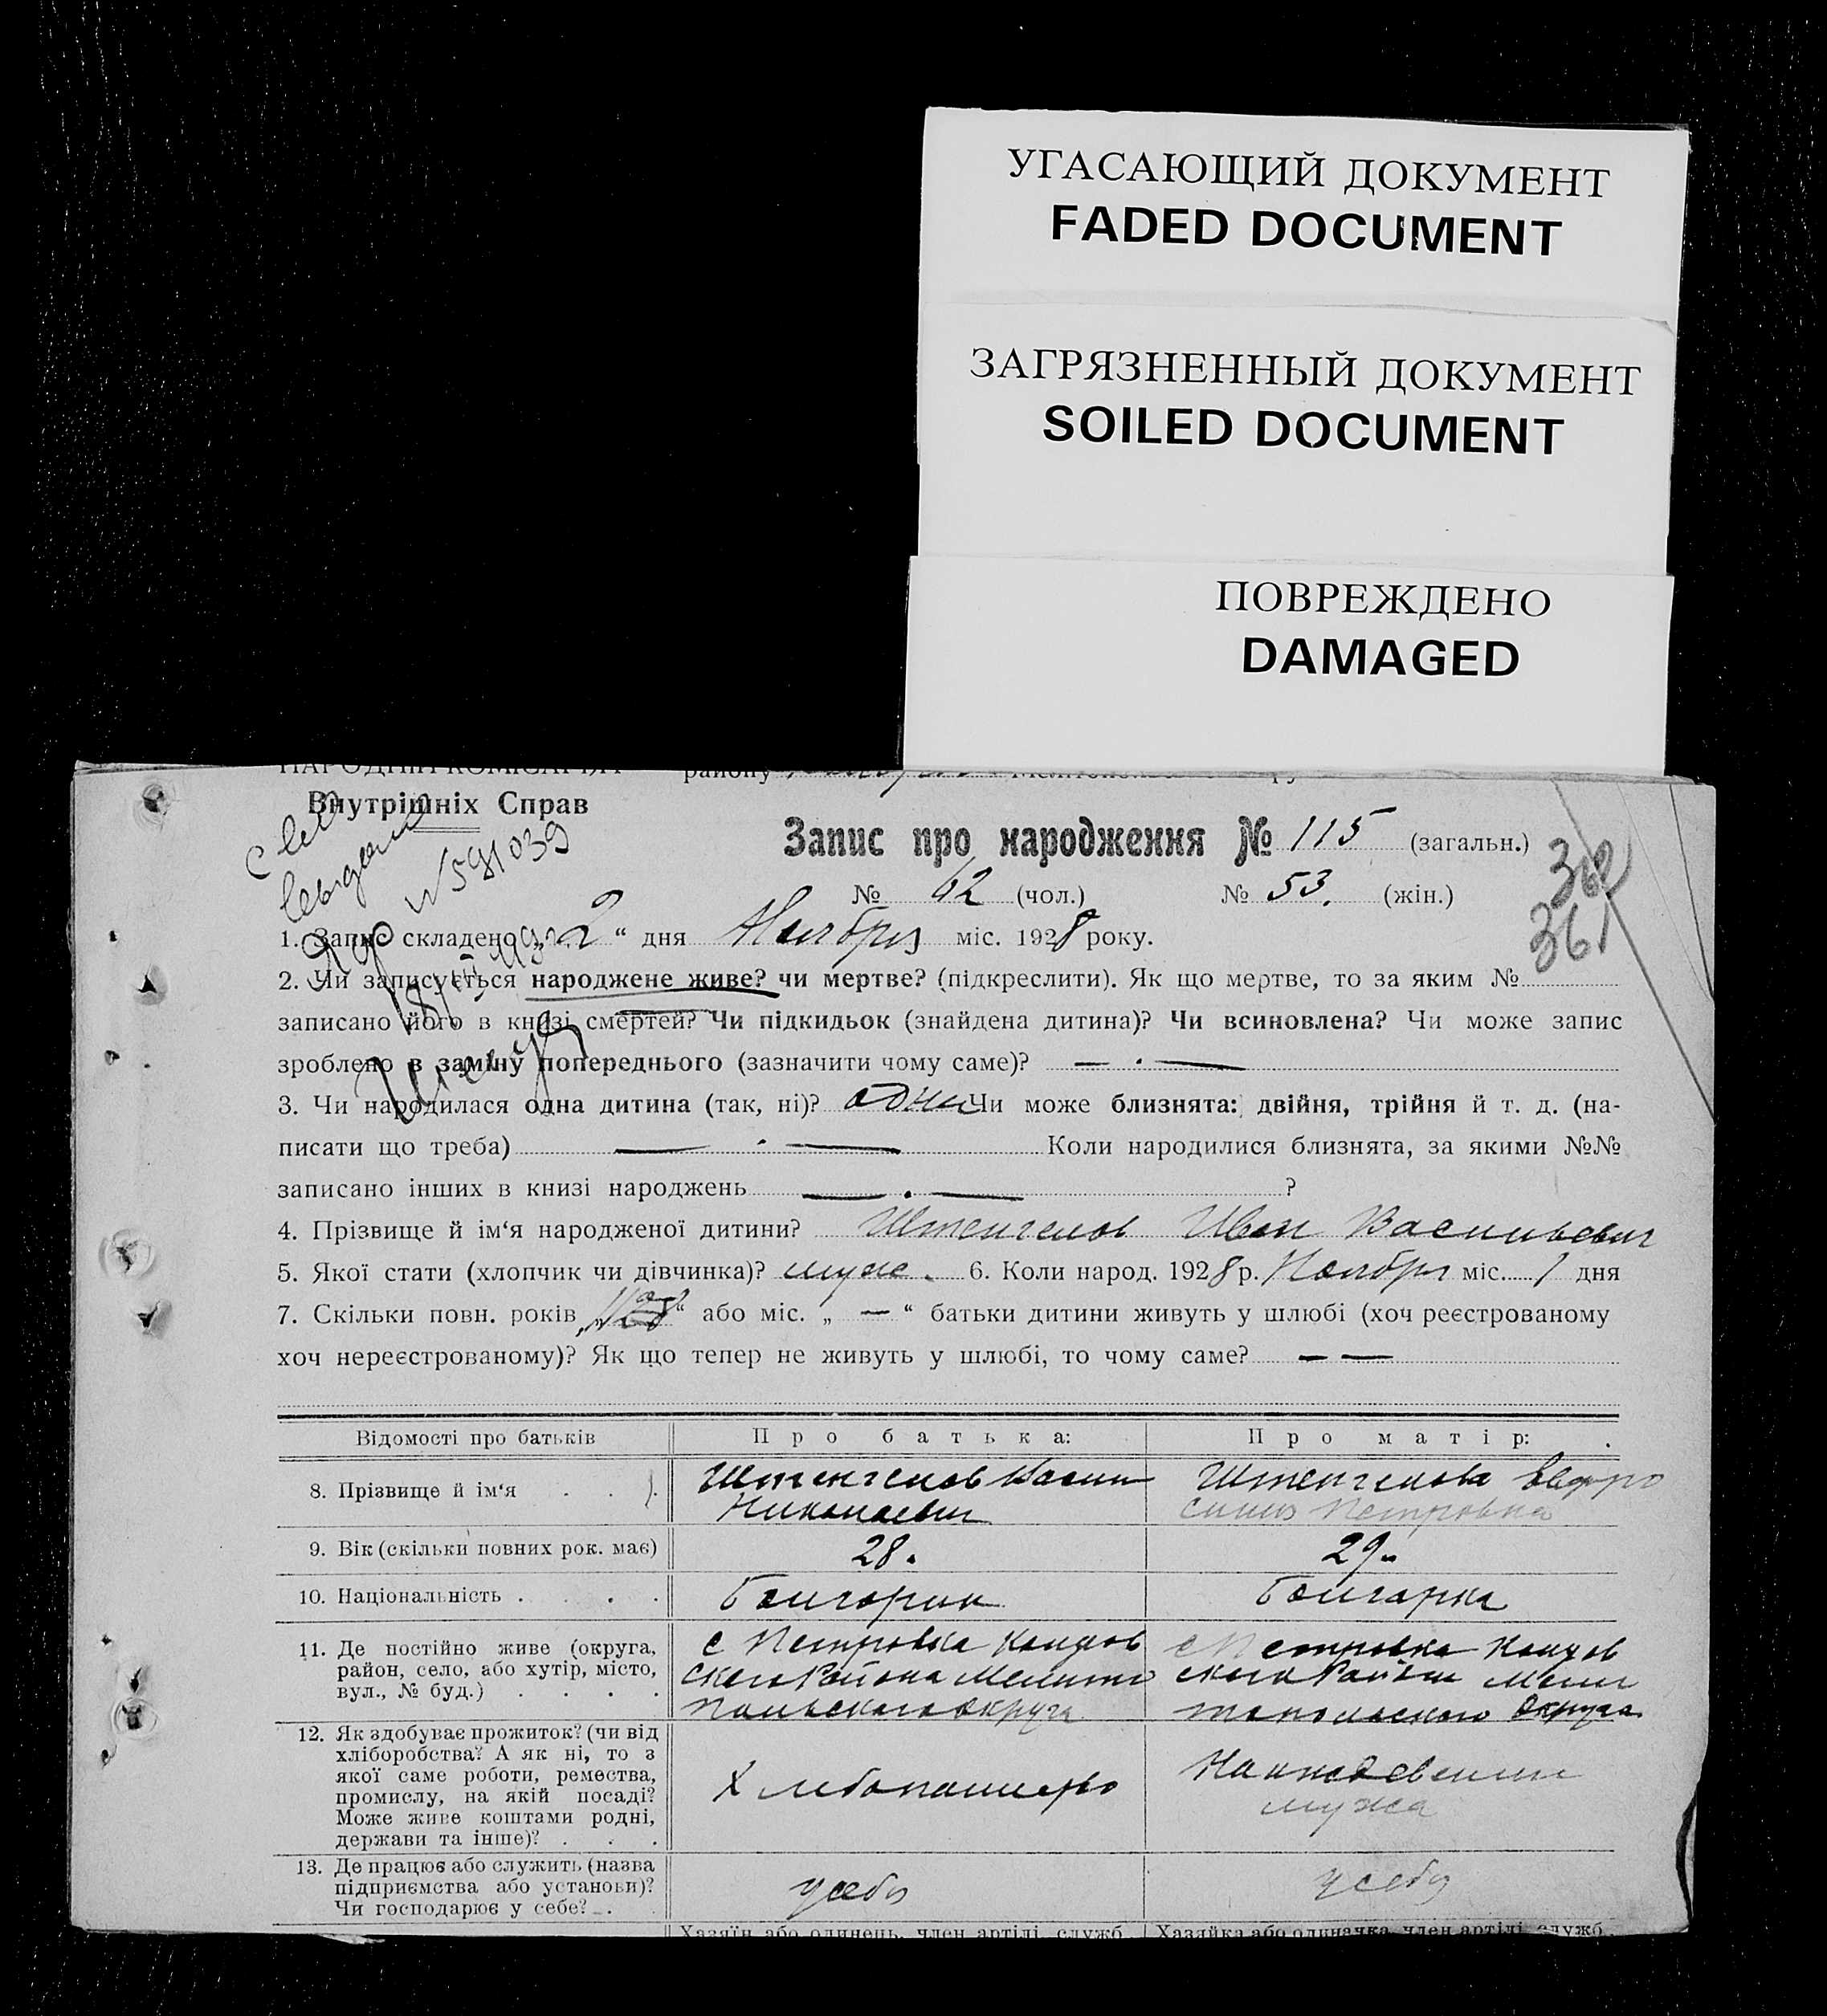 УГАСАЮЩИЙ ДОКУМЕНТ
FADED DOCUMENT
ЗАГРЯЗНЕННЫЙ ДОКУМЕНТ
SOILED DOCUMENT
ПОВРЕЖДЕНО
DAMAGED
району
Внутрішніх Справ
Запис про народження № 115 (загальн.)
№ 62 (чол.) № 53. (жін.)
362
361
N 591039
1. Запис складено „2“ дня Ноября міс. 1928 року.
2. Чи записується народжене живе? чи мертве? (підкреслити). Як що мертве, то за яким №
записано його в книзі смертей? Чи підкидьок (знайдена дитина)? Чи всиновлена? Чи може запис
зроблено в заміну попереднього (зазначити чому саме)? — . —
3. Чи народилася одна дитина (так, ні)? одна Чи може близнята: двійня, трійня й т. д. (на-
писати що треба) — . — Коли народилися близнята, за якими №№
записано інших в книзі народжень — . — ?
4. Прізвище й ім‘я народженої дитини? Штенгелов Иван Васильевич
5. Якої стати (хлопчик чи дівчинка)? муж. 6. Коли народ. 1928 р. Ноября міс. 1 дня
7. Скільки повн. років „ “ або міс. „ — “ батьки дитини живуть у шлюбі (хоч реєстрованому
хоч нереєстрованому)? Як що тепер не живуть у шлюбі, то чому саме? — —
Відомості про батьків Про батька: Про матір:
8. Прізвище й ім‘я Штенгелов Васили Николаевич Штенгелова Евфро синия Петровна
9. Вік (скільки повних рок. має) 28. 29.
10. Національність Болгорин Болгарка
11. Де постійно живе (округа, с Петровка Коларов с Петровка Коларов
район, село, або хутір, місто, ского Района Мелито ского Района Мели
вул., № буд.) польского округа топольского округа
12. Як здобуває прожиток? (чи від
хліборобства? А як ні, то з
якої саме роботи, ремества, Хлебопашество На иждевении
промислу, на якій посаді? мужа
Може живе коштами родні,
держави та інше)?
13. Де працює або служить (назва
підприємства або установи)? усебя усебя
Чи господарює у себе?
Хазяїн або одинець, член артілі, служб. Хазяйка або одиначка, член артілі, служб.